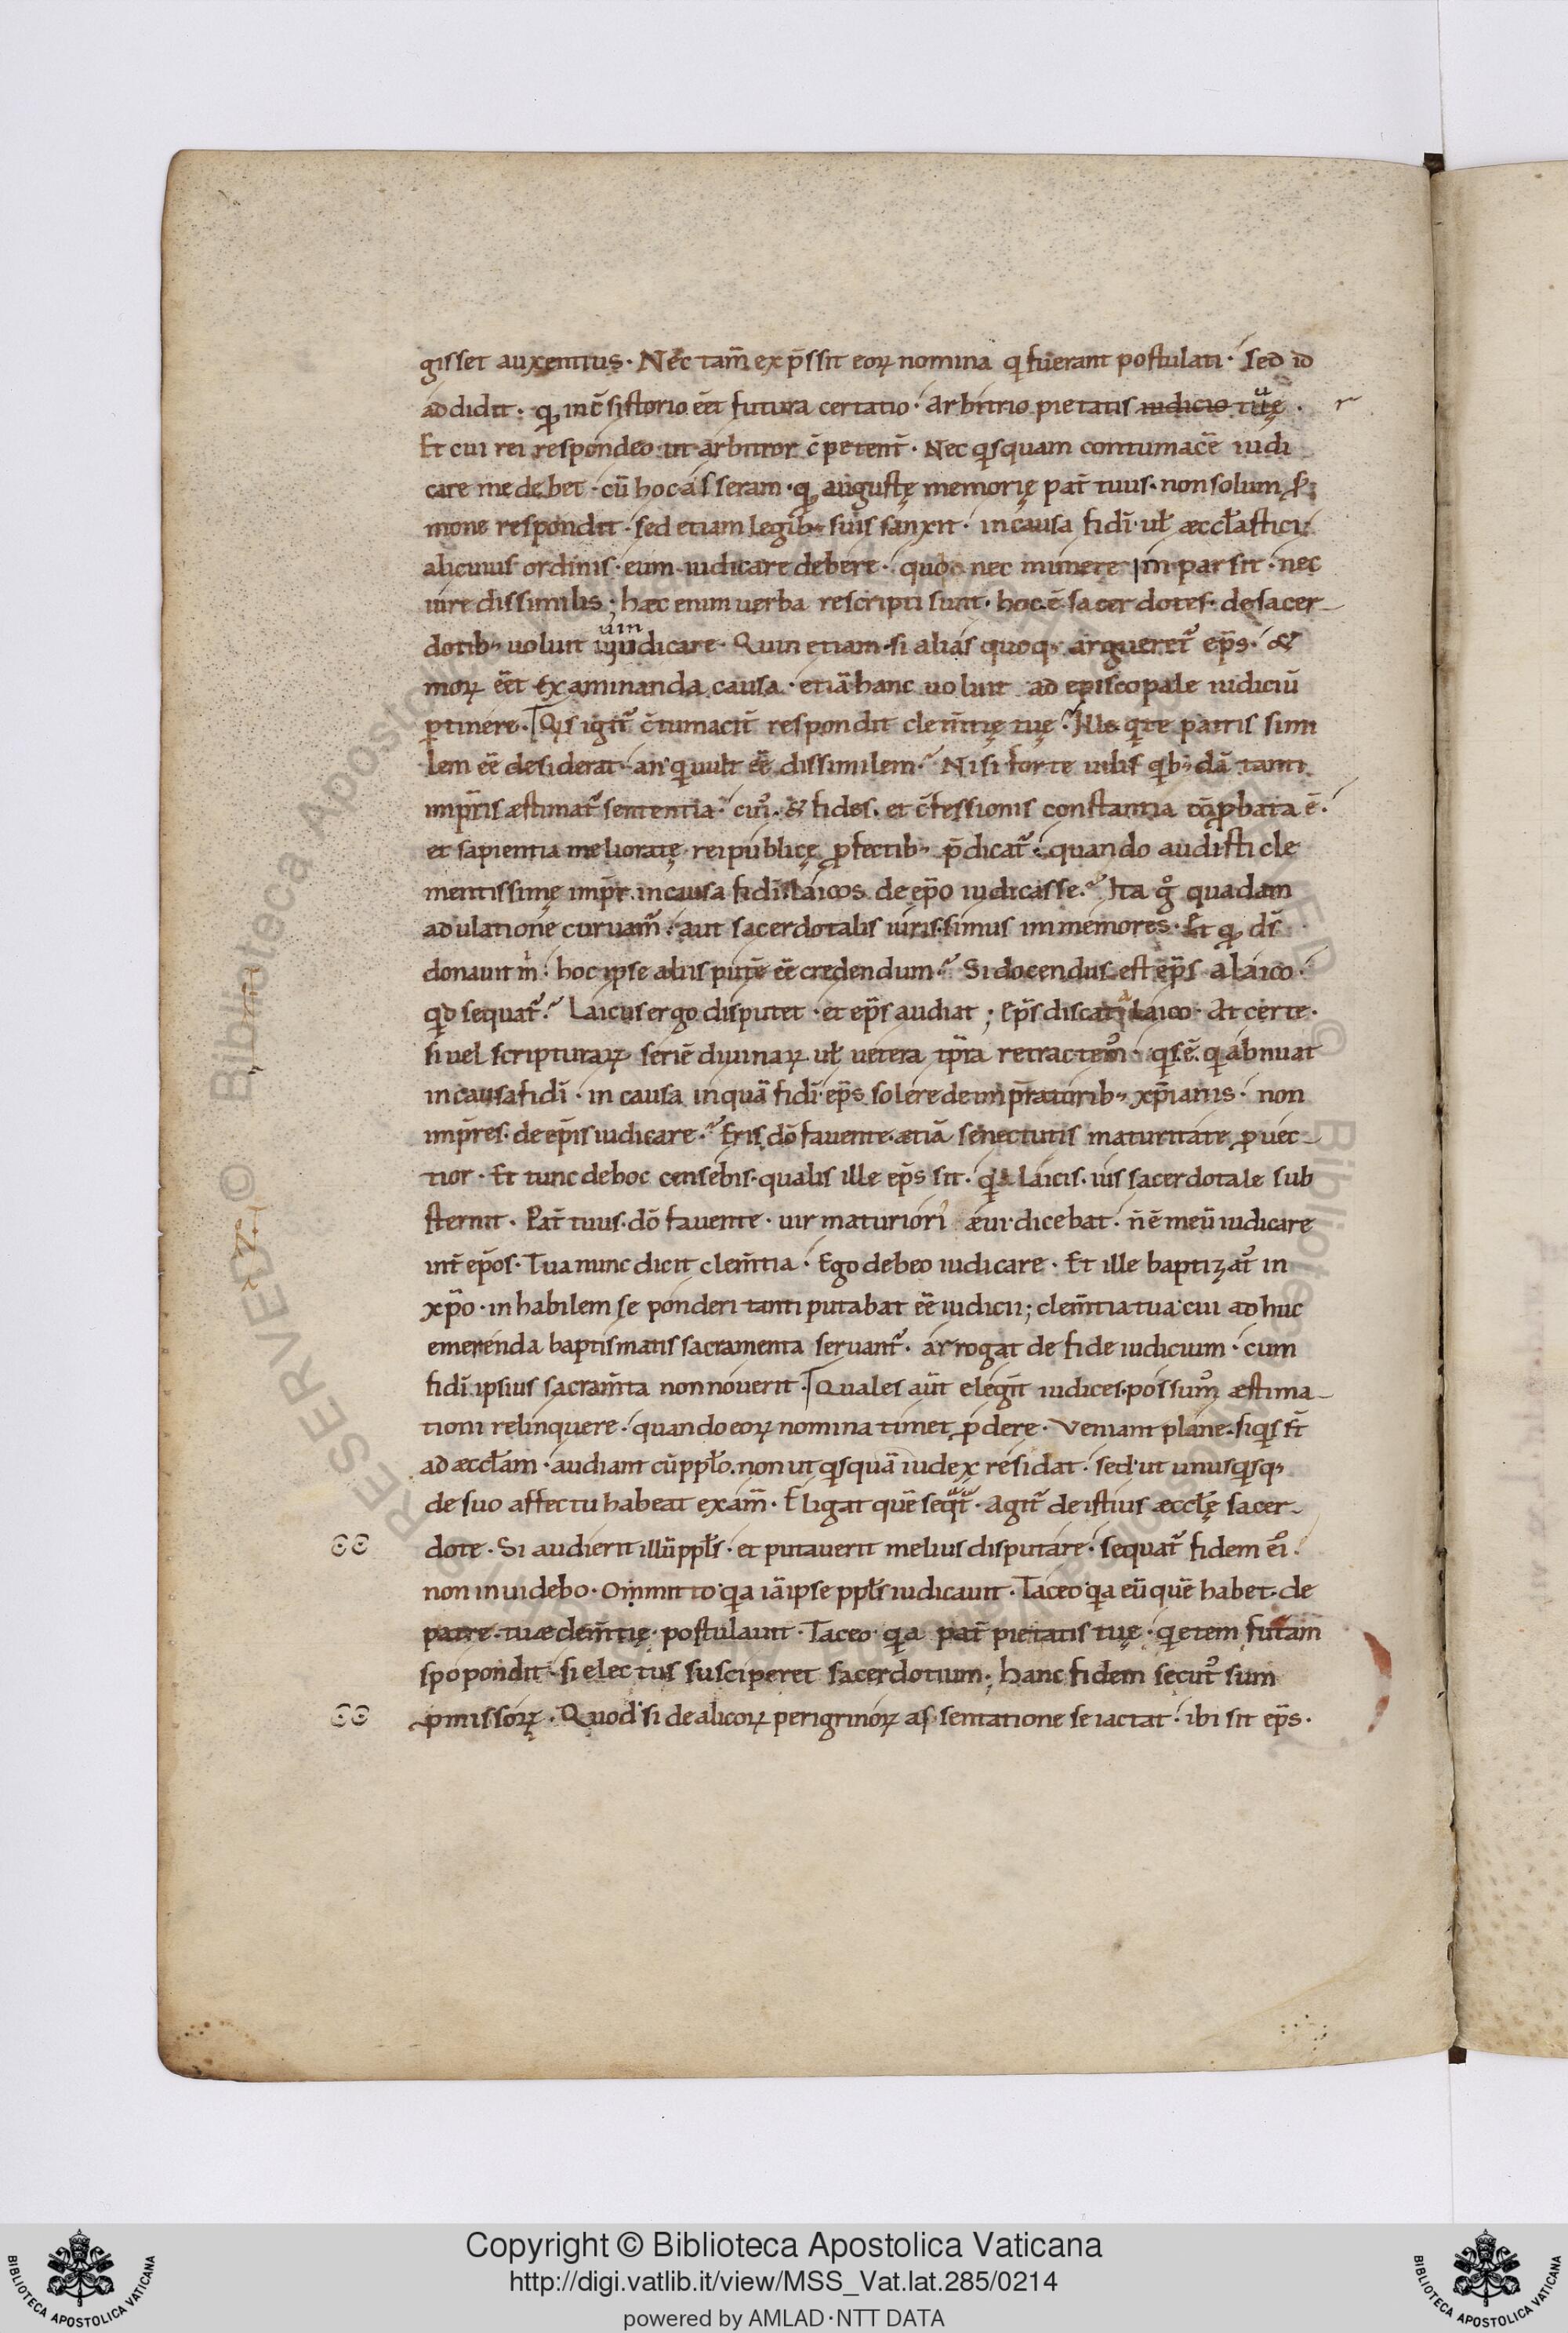 gisset auxentius · Nec tam̄ exp̄ssit eoꝝ nomina q fuerant postulati · sed id
addidit · qđ inc̄sistorio ēet futura certatio · arbitrio pietatis iudicio tuę · r
Et cui rei respondeo ut arbitror c̄petent̄ · Nec qisquam contumacē iudi
care me debet · cū hoc asseram · qđ augustę memorię pat̄ tuus · non solum ser
mone respondit · sed etiam legib; suis sanxit · in causa fidī · ul̄ æccl̄astici
alicuius ordinis · eum iudicare debere · quo nec munere impar sit · nec
iure dissimilis · hæc enim uerba rescripti sunt · hoc ē sacerdotes · de sacer-
dotib; uoluit iudicare · Quin etiam si alias quoq; argueret᷑ ep̄s · &
moꝝ ēet examinanda causa · etiā hanc uoluit ad episcopale iudiciū
ꝑtinere · Qis igit᷑ c̄tumacit̄ respondit clem̄tię tuę · Ille q te patris simi
lem ēē desiderat · an q uult ēē dissimilem · Nisi forte uilis qib;dā tanti
imp̄ris æstimat᷑ sententia · cui᷒ · & fides · et c̄fessionis constantia cō̄ꝓbata ē ·
et sapientia melioratę reipublicę ꝓfectib; p̄dicat᷑ · quando audisti cle
mentissimę imp̄r · in causa fidī laicos de ep̄o iudicasse · Ita g᷒ quadam
adulatione curuam᷑ · aut sacerdotalis iuris simus immemores · Et qđ ds̄
donauit m̄ · hoc ipse aliis putē ēē credendum · Si docendus est ep̄s a laico ·
qid sequat᷑ · Laicus ergo disputet · et ep̄s audiat ; Ep̄s discat a laico · At certe ·
si uel scripturaꝝ seriē diuinaꝝ ul̄ uetera tp̄ra retractem᷒ · qis ē · q abnuat
in causa fidī · in causa inquā fidī ep̄s solere de imp̄ratorib; xp̄ianis · non
imp̄res · de ep̄is iudicare · Eris dō fauente · ætiā senectutis maturitate ꝓuec-
tior · Et tunc de hoc censebis · qualis ille ep̄s sit · qi laicis · ius sacerdotale sub
sternit · Pat̄ tuus · dō fauente · uir maturiori æui · dicebat · n̄ ē meū iudicare
int̄ ep̄os · Tua nunc dicit clem̄tia · Ego debeo iudicare · Et ille baptizat᷒ in
xp̄o · inhabilem se ponderi tanti putabat ēē iudicii ; clem̄tia tua cui adhuc
emerenda baptismatis sacramenta seruant᷑ · arrogat de fide iudicium · cum
fidī ipsius sacram̄ta non nouerit · Quales aūt elegīt iudices · possum᷒ æstima-
tioni relinquere · quando eoꝝ nomina timet ꝓdere · Veniant plane · siqis st̄
ad æccl̄am · audiant cū ppl̄o · non ut qisquā iudex residat · sed ut unusqisq;
de suo affectu habeat exam̄ · Eligat quē seqit᷑ · agit᷑ de istius æccl̄ę sacer-
dote · Si audierit illū ppl̄s · et putauerit melius disputare · sequat᷑ fidem ei᷒ ·
non inuidebo · Omitto qia iā ipse ppl̄s iudicauit · Taceo qia eū quē habet · de
patre · tuæ clem̄tię · postulauit · Taceo qia pat̄ pietatis tuę · qietem futām
spopondit · si electus susciperet sacerdotium · hanc fidem secut᷒ sum
ꝓmissoꝝ · Quod si de alicoꝝ perigrinoꝝ assentatione se iactat · ibi sit ep̄s ·
Copyright © Biblioteca Apostolica Vaticana
http://digi.vatlib.it/view/MSS_Vat.lat.285/0214
powered by AMLAD·NTT DATA